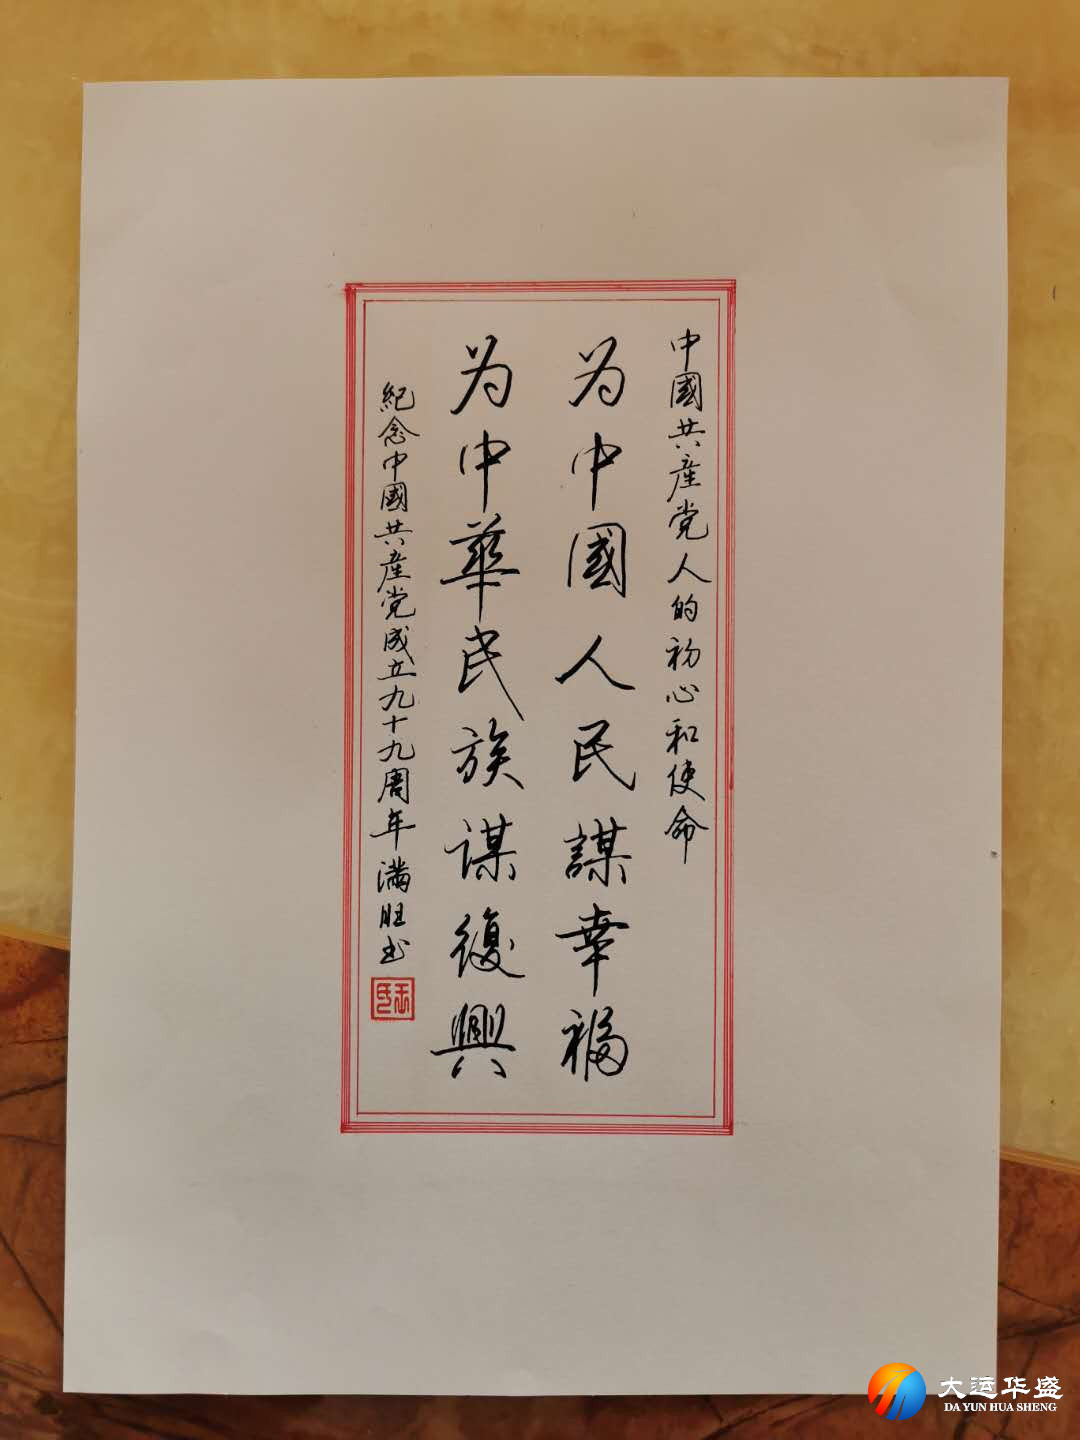 中國共產党人的初心和使命
为中國人民謀幸福
为中華民族谋復興
紀念中國共產党成立九十九周年满旺书
大运华盛
DA YUN HUA SHENG